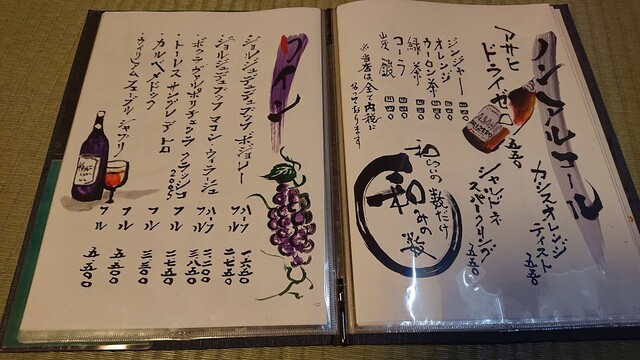 ノンアルコール
アサヒ
ドライゼロ
五五〇
カシスオレンジ
テイスト
五五〇
シャルドネ
スパークリング
五五〇
ジンジャー
オレンジ
ウーロン茶
緑茶
コーラ
炭酸
※当店は、全て内税に
なっております
和らいの数だけ
和みの数
ワイン
・ジョルジュデュブッフ ボジョレー ハーフ 一六五〇
フル 二七五〇
・ジョルジュデュブッフ マコン・ヴィラージュ ハーフ 二二〇〇
フル 三八五〇
・ボッラ・ヴァルポリチェッラ クラッシコ 2005 フル 二七五〇
・トーレス サングレ デ トロ フル 三三〇〇
・カルベ メドック フル 五五〇〇
・ウィリアム フェーブル シャブリ フル 五五〇〇